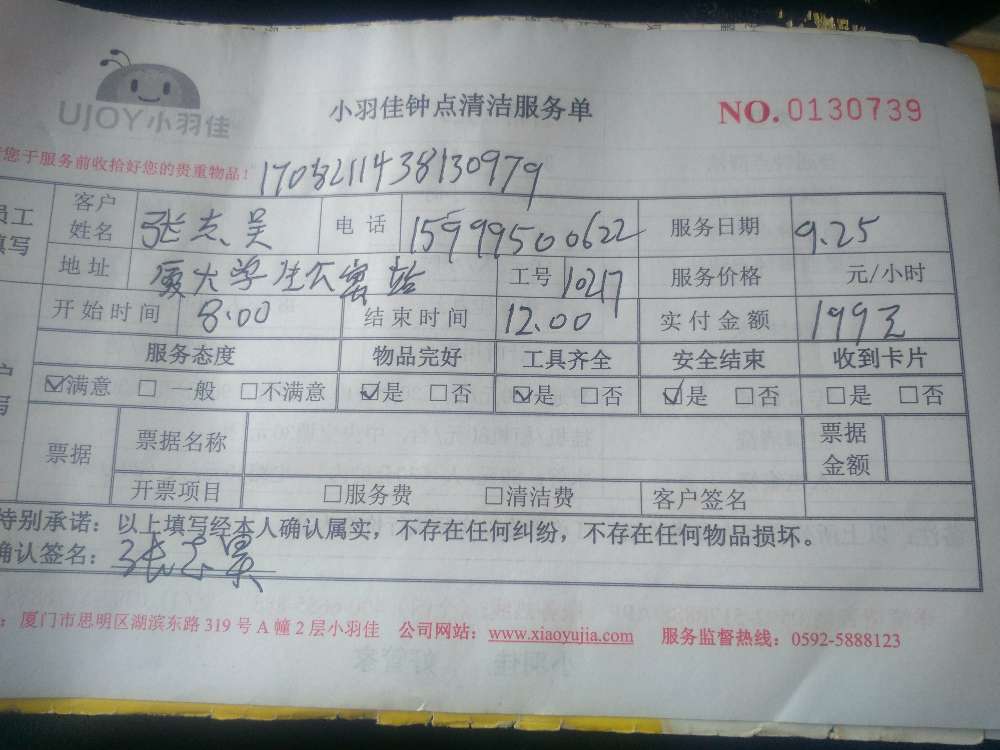 UJOY小羽佳
小羽佳钟点清洁服务单
NO.0130739
您于服务前收拾好您的贵重物品！
客户姓名 张志吴 电话 15999500622 服务日期 9.25
地址 厦大学生公寓站 工号 10217 服务价格 元/小时
开始时间 8:00 结束时间 12.00 实付金额 199元
服务态度 物品完好 工具齐全 安全结束 收到卡片
☑满意 □一般 □不满意 ☑是 □否 ☑是 □否 ☑是 □否 □是 □否
票据 票据名称 票据金额
开票项目 □服务费 □清洁费 客户签名
特别承诺：以上填写经本人确认属实，不存在任何纠纷，不存在任何物品损坏。
确认签名：
厦门市思明区湖滨东路319号A幢2层小羽佳 公司网站：www.xiaoyujia.com 服务监督热线：0592-5888123